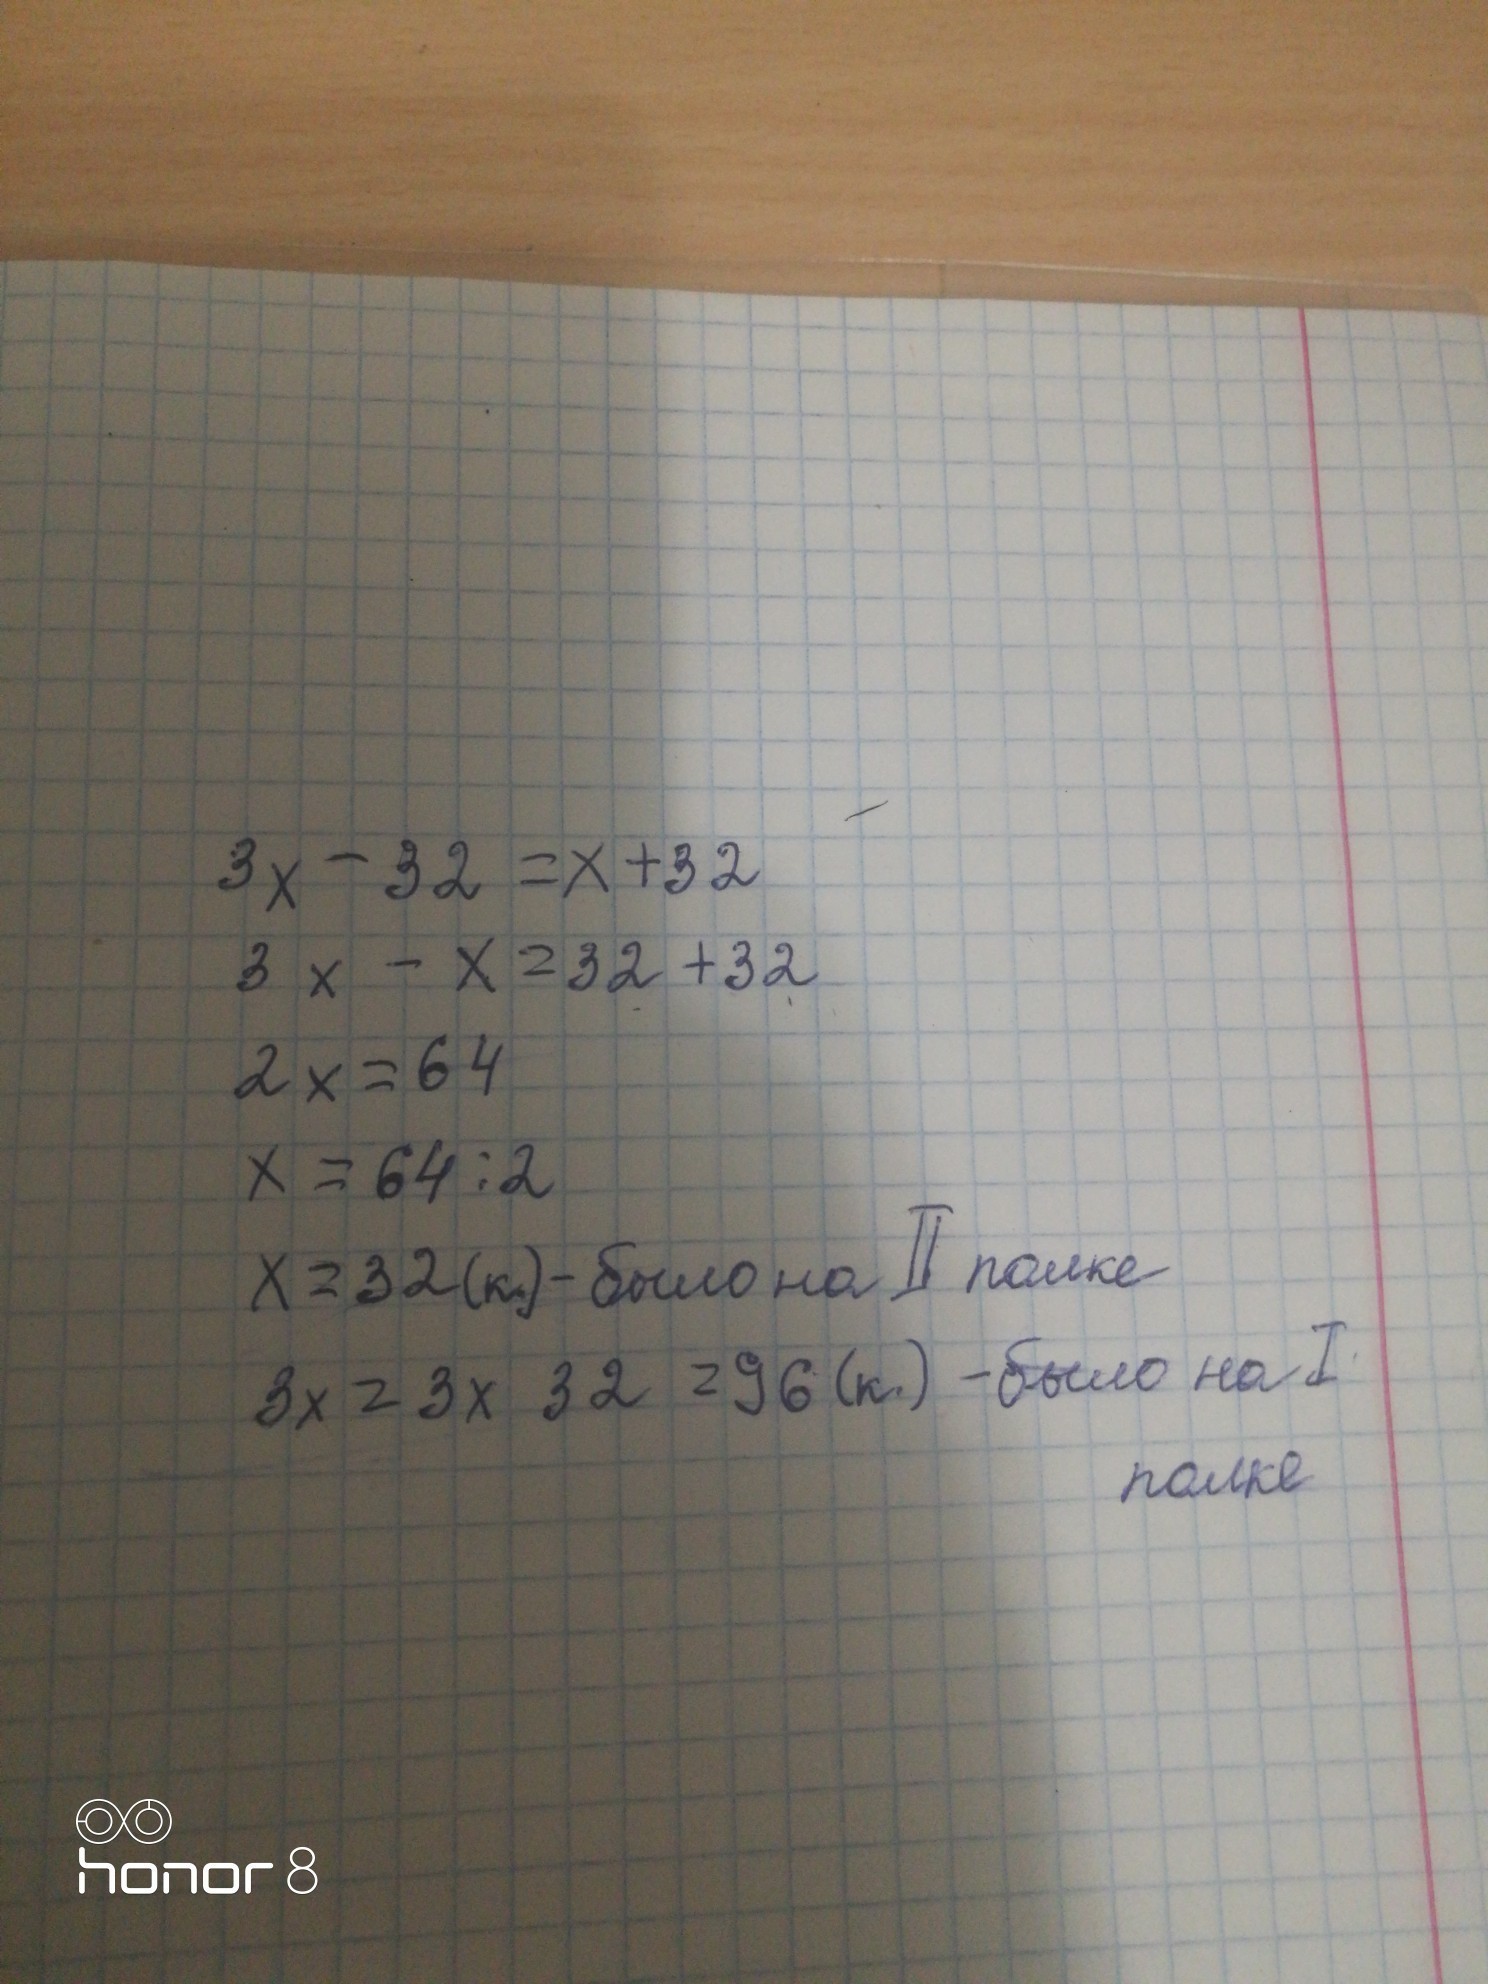 3x - 32 = x + 32
3x - x = 32 + 32
2x = 64
x = 64 : 2
x = 32 (к.) - было на II полке
3x = 3x 32 = 96 (к.) - было на I
полке
honor 8